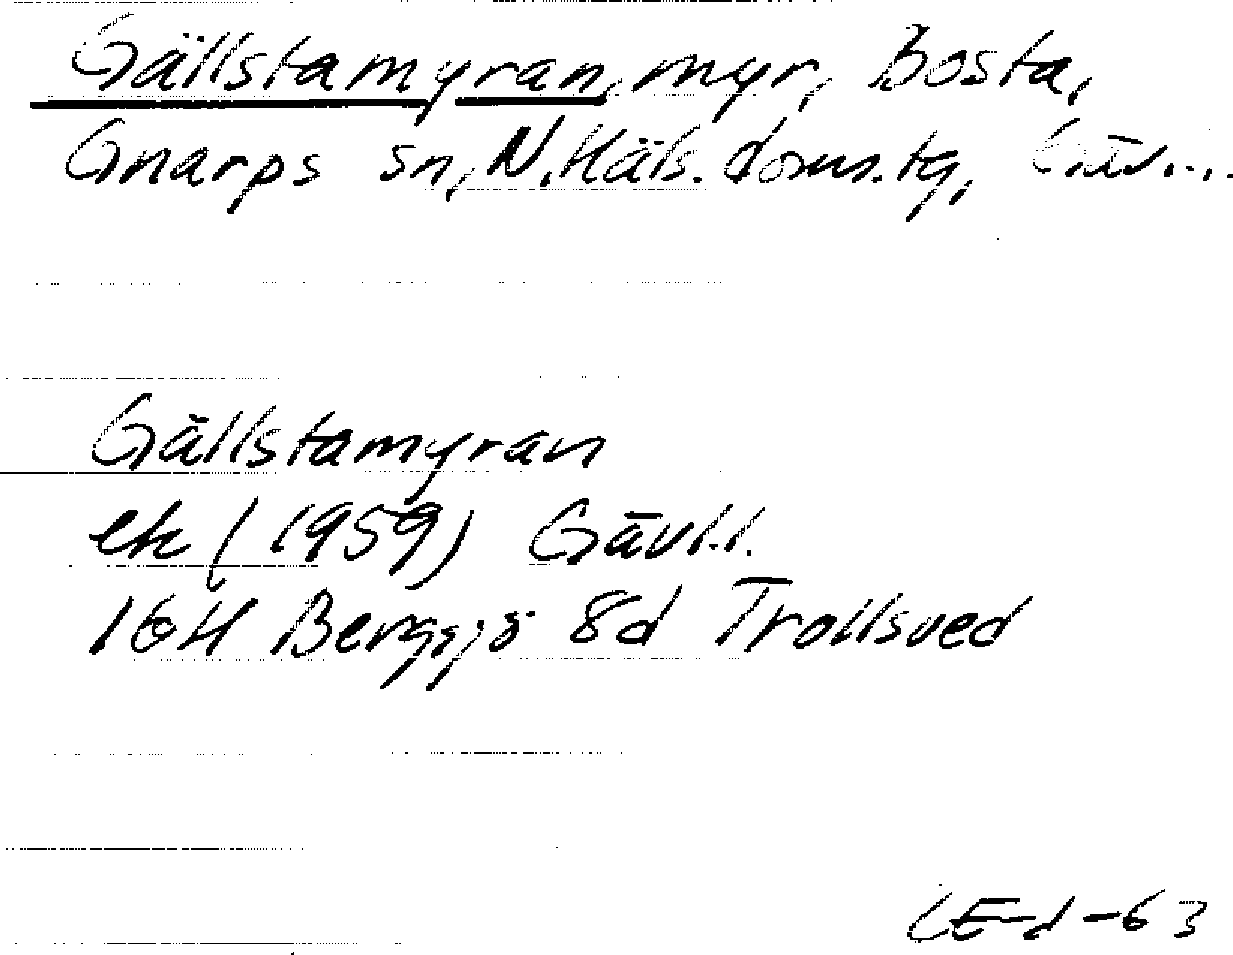 Gällstamyran, myr, Bosta,
Gnarps sn, N. Häls. doms.tg, Gäv.l.
Gällstamyran
ek (1959) Gävl.l.
16H Bergsjö 8d Trollsved
CE-d-63